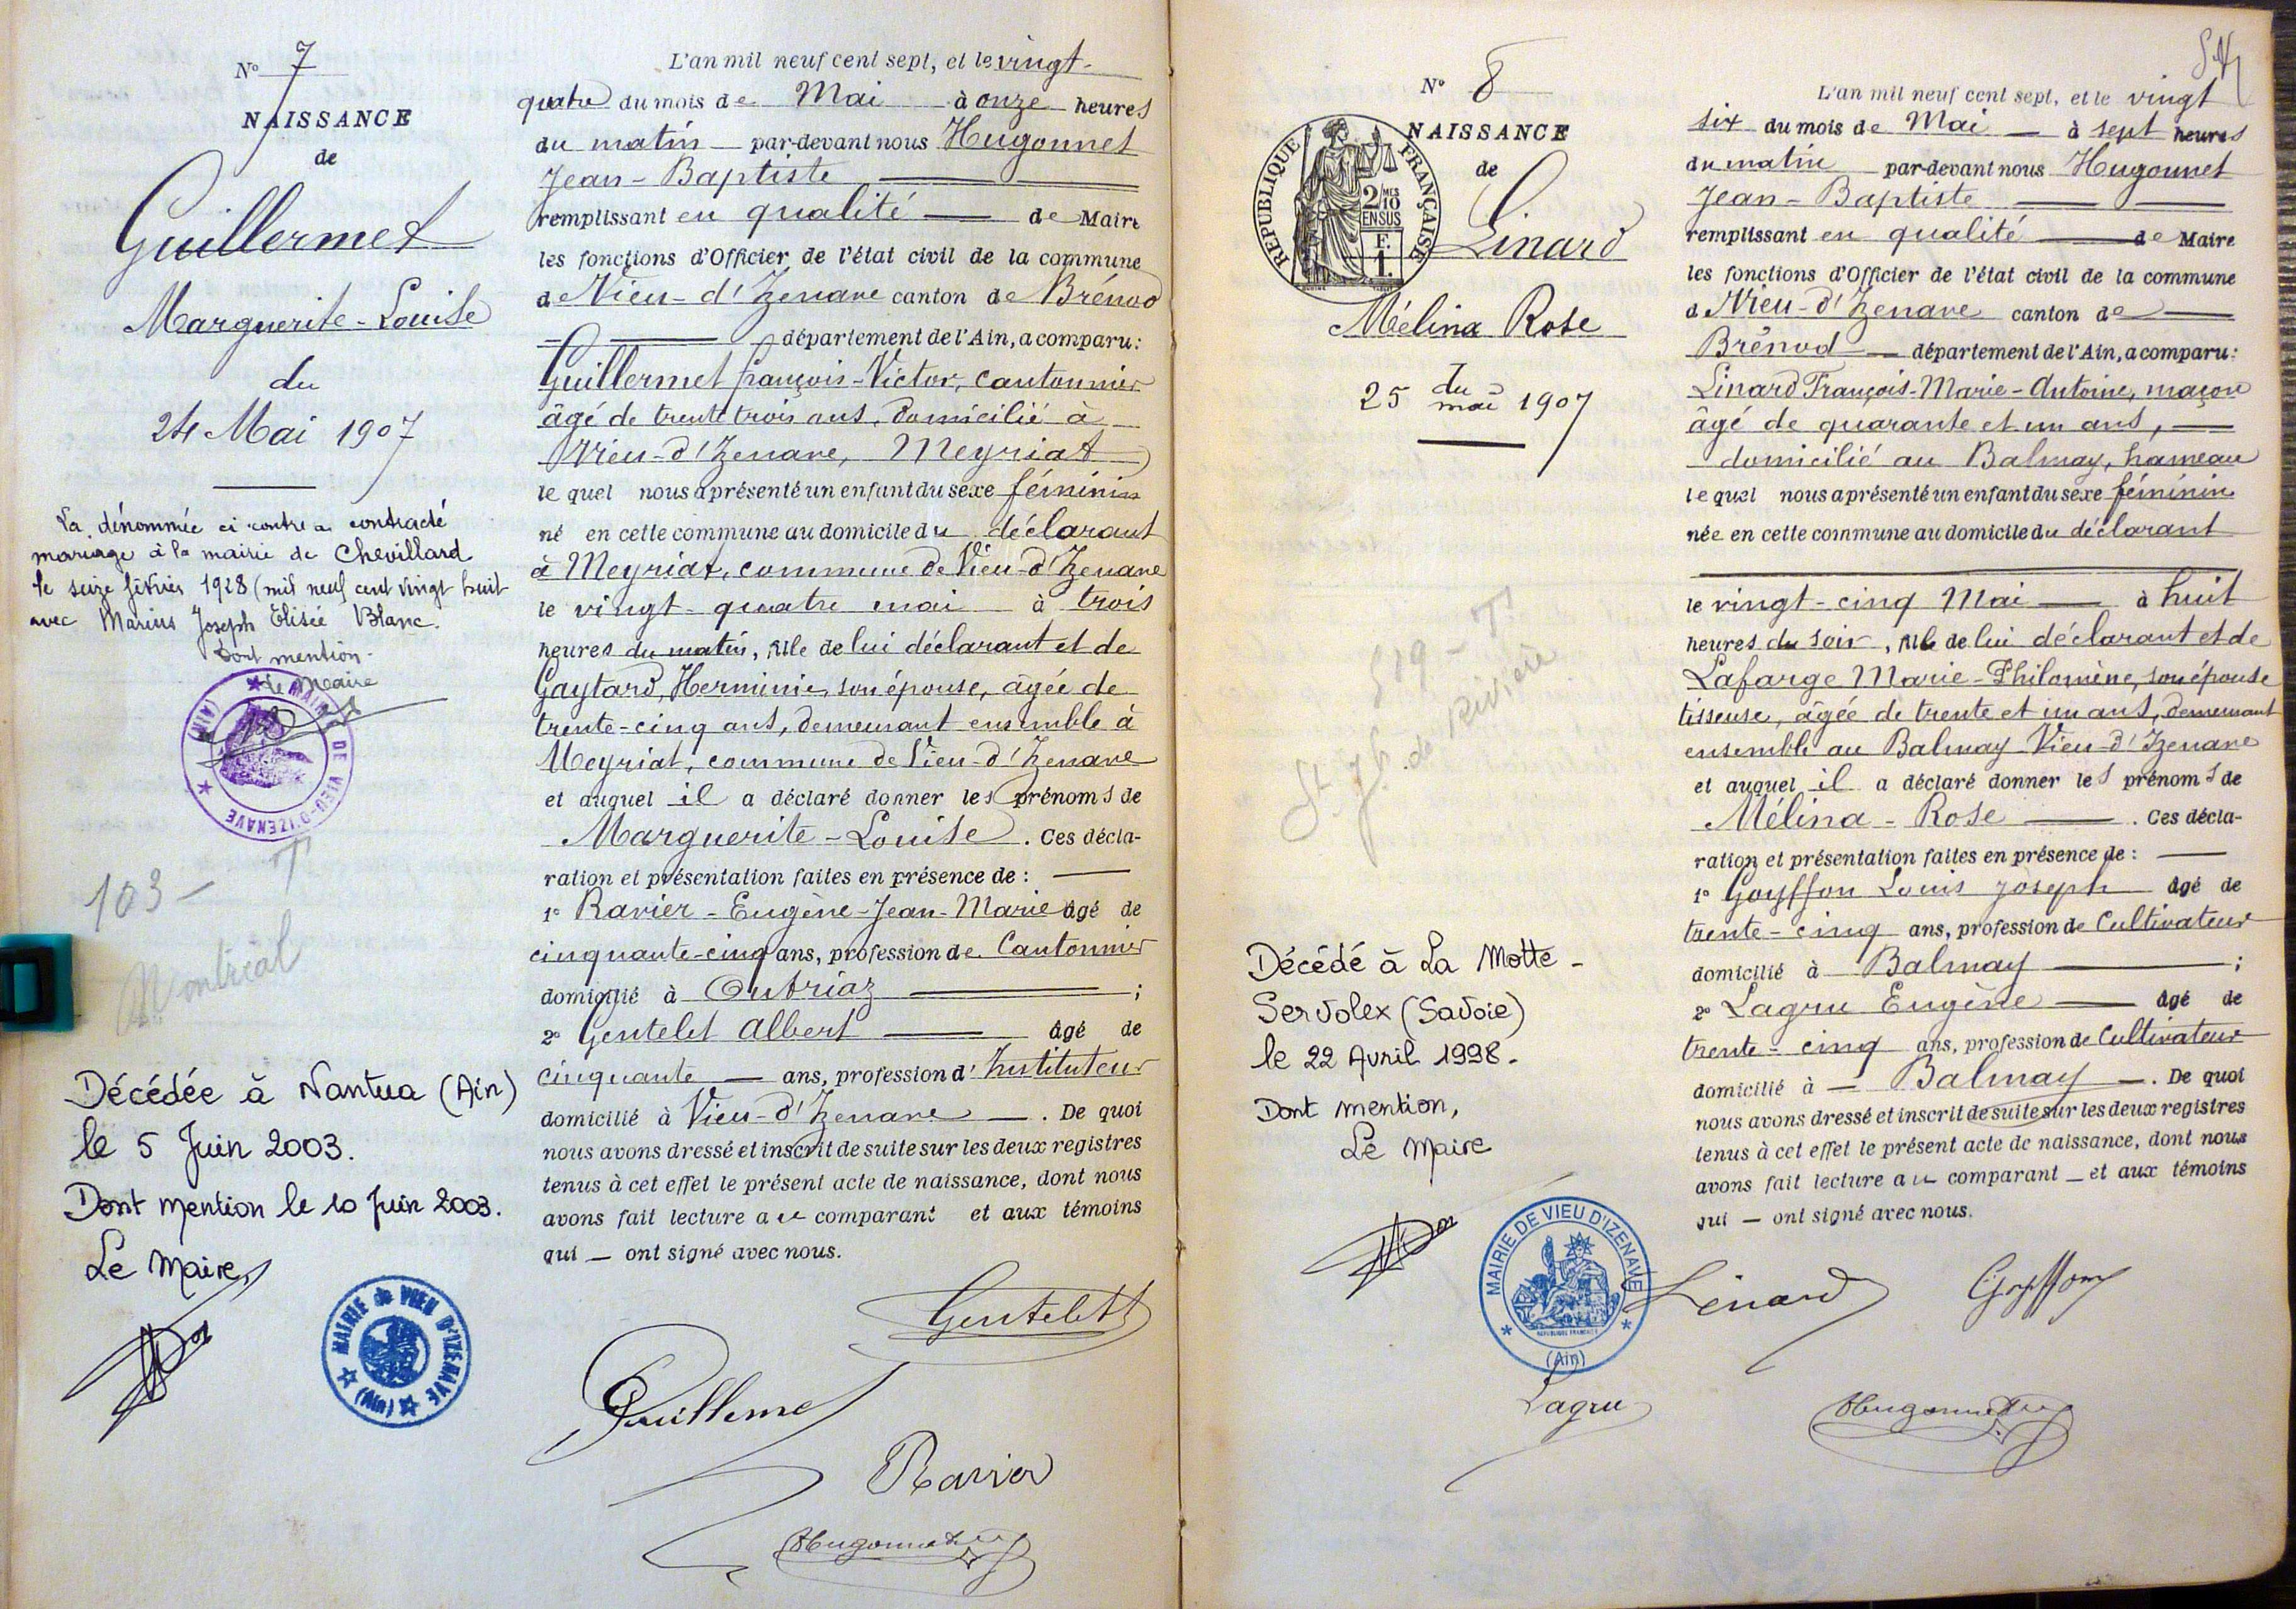 N° 7
NAISSANCE
de
Guillermet
Marguerite-Louise
du
24 Mai 1907
La dénommée ci contre a contracté
mariage à la mairie de Chevillard
le seize février 1928 (mil neuf cent vingt huit
avec Marius Joseph Elisée Blanc.
Dont mention.
Le Maire
MAIRIE DE VIEU-D'IZENAVE (AIN)
103 - T
Montréal
Décédée à Nantua (Ain)
le 5 Juin 2003.
Dont mention le 10 Juin 2003.
Le Maire,
MAIRIE de VIEU D'IZENAVE
(Ain)
L'an mil neuf cent sept, et le vingt-
quatre du mois de Mai à onze heures
du matin par-devant nous Hugonnet
Jean-Baptiste
remplissant en qualité de Maire
les fonctions d'Officier de l'état civil de la commune
de Vieu-d'Izenave canton de Brénod
département de l'Ain, a comparu:
Guillermet françois-Victor, cantonnier
âgé de trente trois ans, domicilié à
Vieu-d'Izenave, Meyriat
le quel nous a présenté un enfant du sexe féminin
né en cette commune au domicile du déclarant
à Meyriat, commune de Vieu-d'Izenave
le vingt-quatre mai à trois
heures du matin, fille de lui déclarant et de
Gaytard, Herminie, son épouse, âgée de
trente-cinq ans, demeurant ensemble à
Meyriat, commune de Vieu-d'Izenave
et auquel il a déclaré donner les prénoms de
Marguerite-Louise. Ces décla-
ration et présentation faites en présence de :
1° Ravier-Eugène-Jean-Marie âgé de
cinquante-cinq ans, profession de Cantonnier
domicilié à Outriaz ;
2° Gentelet Albert âgé de
cinquante ans, profession d'Instituteur
domicilié à Vieu-d'Izenave. De quoi
nous avons dressé et inscrit de suite sur les deux registres
tenus à cet effet le présent acte de naissance, dont nous
avons fait lecture au comparant et aux témoins
qui — ont signé avec nous.
Gentelet
Guillermet
Ravier
Hugonnet
N° 8
NAISSANCE
de
REPUBLIQUE FRANÇAISE
2/10 MES
EN SUS
F.
1.
Linard
Mélina Rose
du
25 mai 1907
519 - T
St J. de Rivière
Décédé à La Motte-
Servolex (Savoie)
le 22 Avril 1998.
Dont mention,
Le Maire
MAIRIE DE VIEU D'IZENAVE
REPUBLIQUE FRANÇAISE
(Ain)
L'an mil neuf cent sept, et le vingt
six du mois de Mai — à sept heures
du matin par-devant nous Hugonnet
Jean-Baptiste
remplissant en qualité de Maire
les fonctions d'Officier de l'état civil de la commune
d Vieu-d'Izenave canton de
Brénod département de l'Ain, a comparu:
Linard François-Marie-Antoine, maçon
âgé de quarante et un ans,
domicilié au Balmay, hameau
le quel nous a présenté un enfant du sexe féminin
née en cette commune au domicile du déclarant
le vingt-cinq Mai à huit
heures du soir, fille de lui déclarant et de
Lafarge Marie-Philomène, son épouse
tisseuse, âgée de trente et un ans, demeurant
ensemble au Balmay Vieu-d'Izenave
et auquel il a déclaré donner les prénoms de
Mélina-Rose. Ces décla-
ration et présentation faites en présence de :
1° Goyffon Louis Joseph âgé de
trente-cinq ans, profession de Cultivateur
domicilié à Balmay ;
2° Lagru Eugène âgé de
trente-cinq ans, profession de Cultivateur
domicilié à Balmay. De quoi
nous avons dressé et inscrit de suite sur les deux registres
tenus à cet effet le présent acte de naissance, dont nous
avons fait lecture au comparant — et aux témoins
qui — ont signé avec nous.
Linard
Goyffon
Lagru
Hugonnet